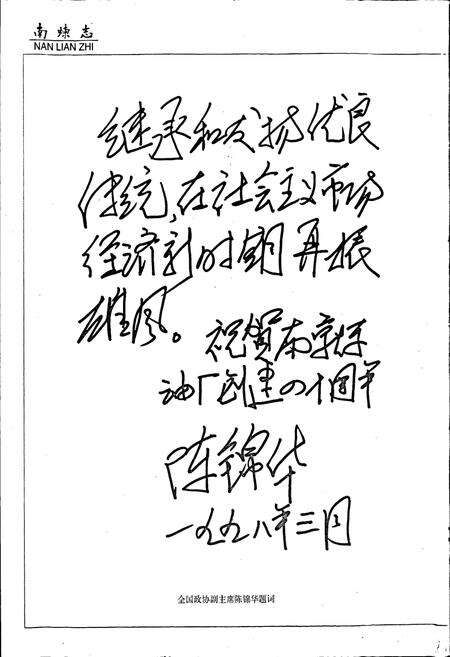 南炼志
NAN LIAN ZHI
继承和发扬优良
传统,在社会主义市场
经济新时期再振
雄风。
祝贺南京炼
油厂创建四十周年
陈锦华
一九九八年三月
全国政协副主席陈锦华题词